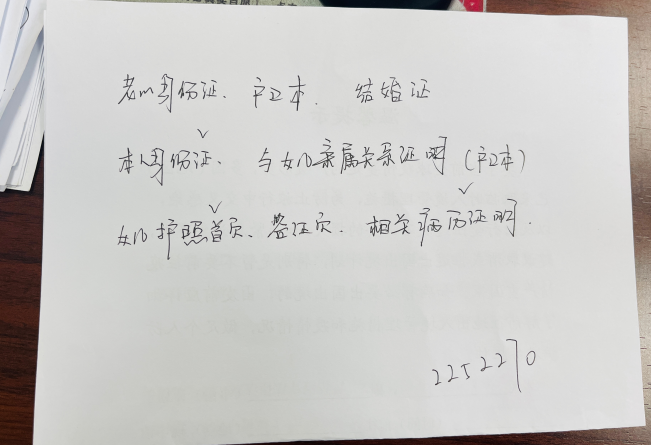 老公身份证、户口本、结婚证
本人身份证、与女儿亲属关系证明(户口本)
女儿护照首页、签证页、相关病历证明.
2252270